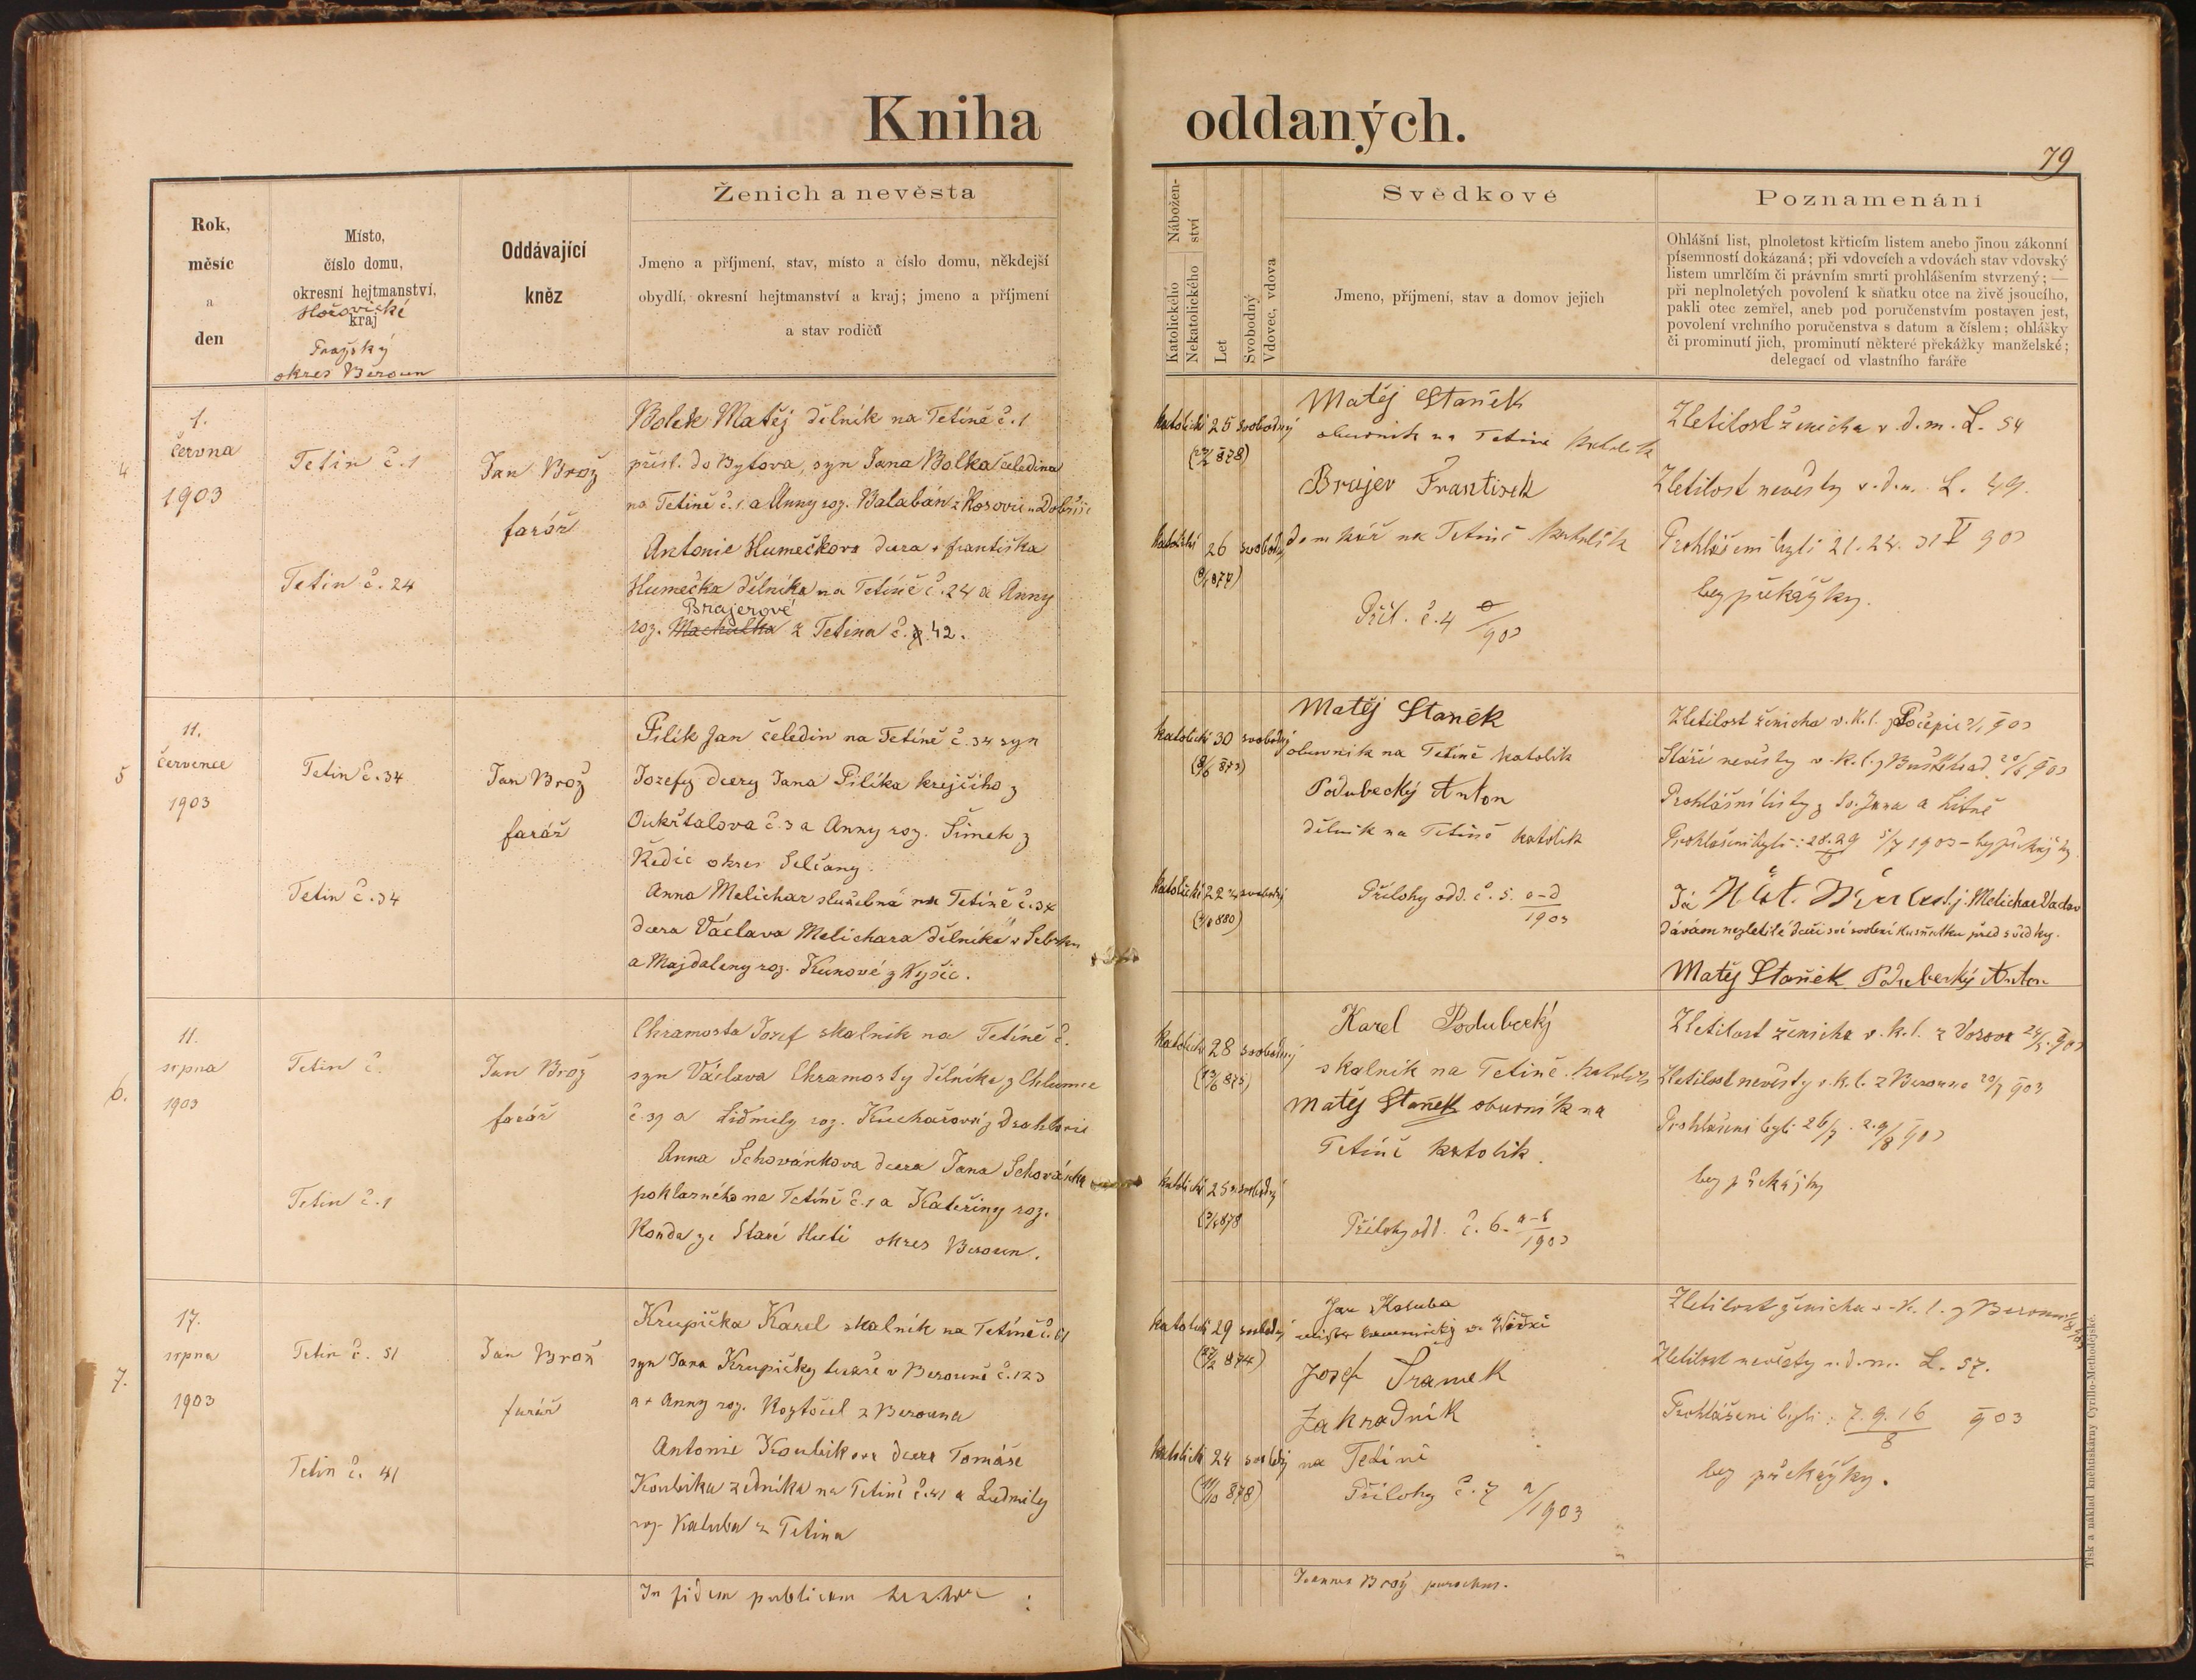 Kniha oddaných.
79
Rok,
měsíc
a
den
Místo,
číslo domu,
okresní hejtmanství,
Hořovické
kraj
Pražský
okres Beroun
Oddávající
kněz
Ženich a nevěsta
Jmeno a příjmení, stav, místo a číslo domu, někdejší
obydlí, okresní hejtmanství a kraj; jmeno a příjmení
a stav rodičů
Nábožen-
ství
Katolického
Nekatolického
Let
Svobodný
Vdovec, vdova
Svědkové
Jmeno, příjmení, stav a domov jejich
Poznamenání
Ohlášní list, plnoletost křticím listem anebo jinou zákonní
písemností dokázaná; při vdovcích a vdovách stav vdovský
listem umrlčím či právním smrti prohlášením stvrzený; —
při neplnoletých povolení k sňatku otce na živě jsoucího,
pakli otec zemřel, aneb pod poručenstvím postaven jest,
povolení vrchního poručenstva s datum a číslem; ohlášky
či prominutí jich, prominutí některé překážky manželské;
delegací od vlastního faráře
4
1.
června
1903
Tetin č. 1
Tetin č. 24
Jan Brož
farář
Bolek Matěj dělník na Tetíně č. 1
přísl. do Bytova, syn Jana Bolka čeledína
na Tetíně č. 1. a Anny roz. Balabán z Rosovic u Dobříše
Antonie Humečkova dcera + františka
Humečka dělníka na Tetíně č. 24 a Anny
Brajerové
roz. Machulka z Tetina č. 42.
katolický 25 svobodný
katolická 26 svobodná
Matěj Staněk
obuvník na Tetíně katolík
Brajer František
domkář na Tetíně katolík
Příl. č. 4 903
Zletilost ženicha v. d. m. L. 54
Zletilost nevěsty v. d. m. L. 49.
Prohlášeni byli 21. 24. 31 V 903
bez překážky.
5
11.
července
1903
Tetin č. 34
Tetin č. 34
Jan Brož
farář
Pilík Jan čeledin na Tetíně č. 34 syn
Jozefy dcery Jana Pilíka krejčího z
Oukřtalova č. 3 a Anny roz. Šimek z
Ředic okres Selčany.
Anna Melichar služebná na Tetíně č. 34
dcera Václava Melichara dělníka v
a Majdaleny roz. Kunové z Kyšic.
katolický 30 svobodný
katolická 22 svobodná
Matěj Staněk
obuvník na Tetíně katolík
Podubecký Anton
dělník na Tetíně katolík
Přílohy odd. č. 5. a-d
1903
Zletilost ženicha v. k. l. z Počepic
Stáří nevěsty v. k. l. z Buštěhrad
Prohlášní listy z Sv. Jana a Litně
Prohlášeni byli: 28. 29 5/7 1903 – bez překážky
Já t. j. Melichar Vaclav
dávám nezletilé dceři své svolení ku sňatku před svědky.
Matěj Staněk Podubecký Anton
6.
11.
srpna
1903
Tetin č.
Tetin č. 1
Jan Brož
farář
Chramosta Josef skalník na Tetíně č.
syn Václava Chramosty dělníka z Chlumce
č. 39 a Lidmily roz. Kuchařové z Drahlovic
Anna Schovánkova dcera Jana Schovánka
poklasného na Tetíně č. 1 a Kateřiny roz.
Konda ze Staré Huti okres Beroun.
katolický 28 svobodný
katolická 25 svobodná
Karel Podubecký
skalník na Tetíně katolík
Matěj Staněk obuvník na
Tetíně katolík.
Přílohy odd. č. 6. a-b
1903
Zletilost ženicha v. k. l. z Vosova
Zletilost nevěsty v. k. l. z Berouna
Prohlášeni byli 26/7. 2. 9/8 903
bez překážky
7.
17.
srpna
1903
Tetin č. 51
Tetin č. 41
Jan Brož
farář
Krupička Karel skalník na Tetíně č. 61
syn Jana Krupičky tesaře v Berouně č. 123
a + Anny roz. Roztočil z Berouna
Antonie Koubíkova dcera Tomáše
Koubíka zedníka na Tetíně č. 41 a Ludmily
roz. Kaluba z Tetína
In fidem publicam
katolický 29 svobodný
katolická 24 svobodná
Jan Kaluba
Josef Šrámek
Zahradník
na Tetíně
Přílohy č. 7 a/1903
Joannes Brož parochus.
Zletilost ženicha v. k. l. z Berouna
Zletilost nevěsty v. d. m. L. 57.
Prohlášeni byli: 7. 9. 16 903
8
bez překážky.
Tisk a náklad knihtiskárny Cyrillo-Methodějské.